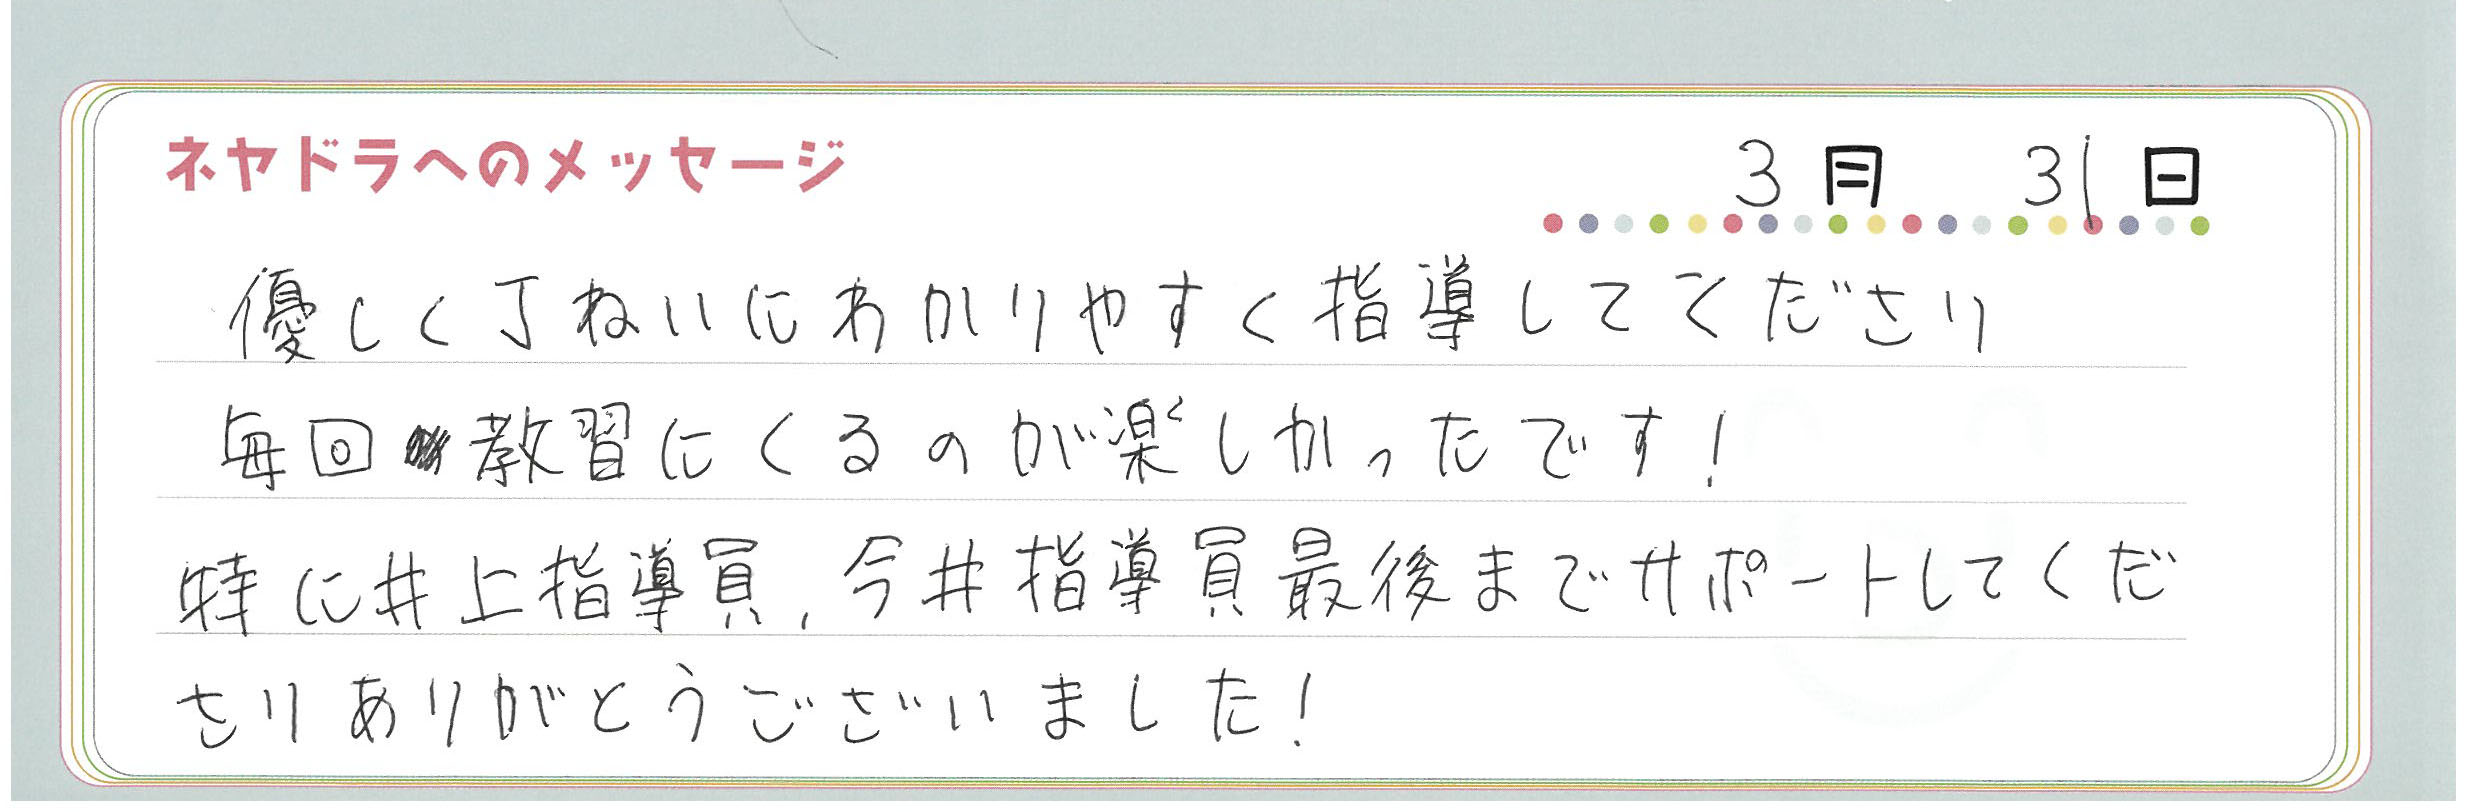 ネヤドラへのメッセージ
3月 31日
優しく丁ねいにわかりやすく指導してくださり
毎回教習にくるのが楽しかったです!
特に井上指導員、今井指導員最後までサポートしてくだ
さりありがとうございました!